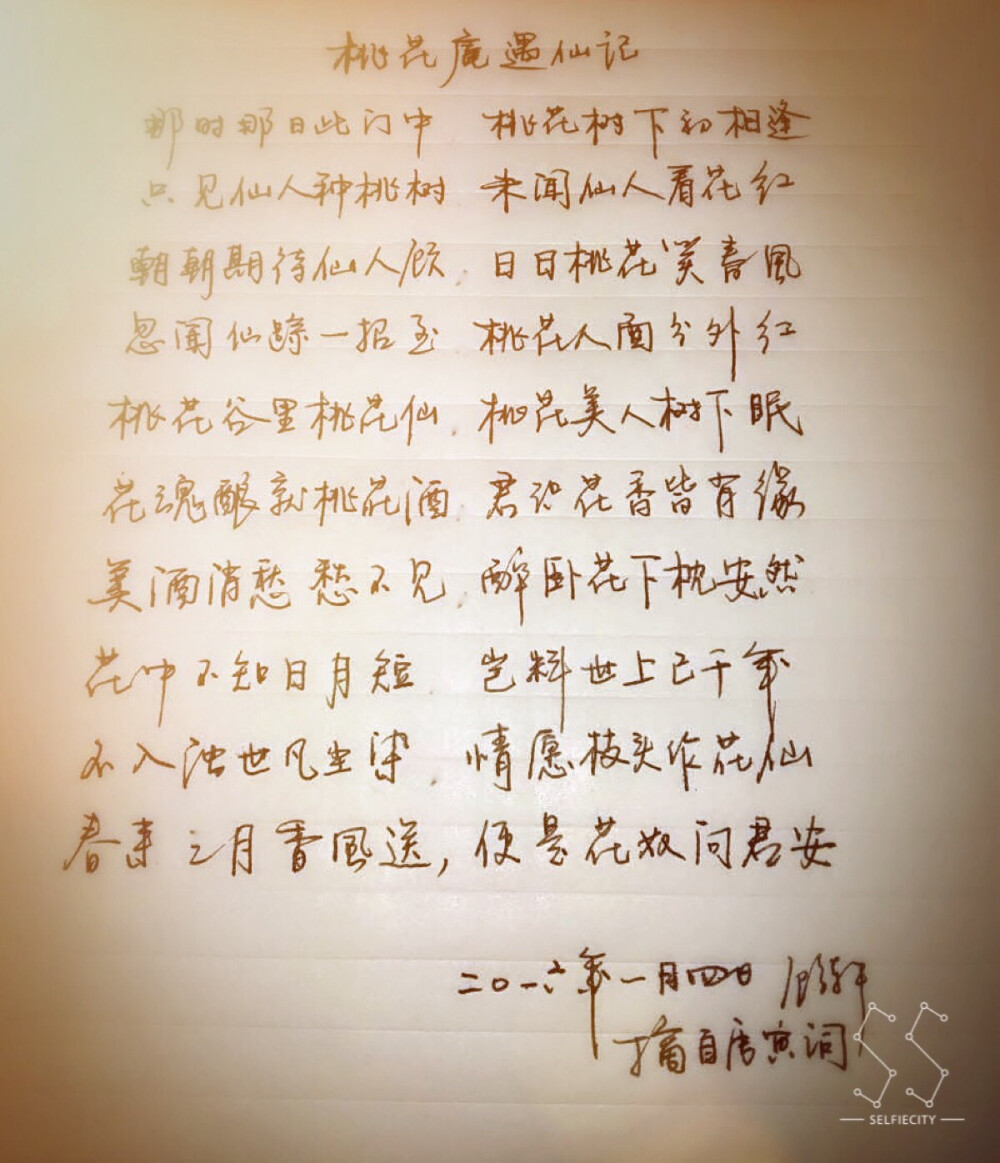 桃花庵遇仙记
那时那日此门中 桃花树下初相逢
只见仙人种桃树 未闻仙人看花红
朝朝期待仙人顾，日日桃花笑春風
忽闻仙踪一招至 桃花人面分外红
桃花谷里桃花仙，桃花美人树下眠
花魂酿就桃花酒，君识花香皆有缘
美酒消愁愁不见，醉卧花下枕安然
花中不知日月短，岂料世上已千年
不入浊世风尘染，情愿枝头作花仙
春来三月香風送，便是花奴问君安
二〇一六年一月四日 顾轩
摘自唐寅词
SELFIECITY